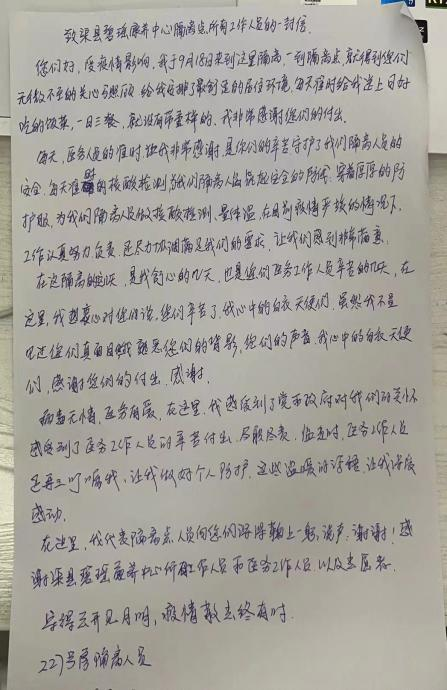 致渠县碧瑶康养中心隔离点所有工作人员的一封信.
您们好,受疫情影响,我于9月18日来到这里隔离,一到隔离点,就得到您们
无微不至的关心与照顾,给我安排了最舒适的居住环境,每天准时给我送上可好
吃的饭菜,一日三餐,就没有带重样的,我非常感谢您们的付出.
每天,医务人员的准时让我非常感谢,是你们的辛苦守护了我们隔离人员的
安全,每天准时的核酸检测为我们隔离人员筑起安全的防线,穿着厚厚的防
护服,为我们隔离人员做核酸检测,量体温,在目前疫情严峻的情况下,
工作认真努力负责,还尽力协调满足我们的需求,让我们感到非常满意.
在这隔离的几天,是我舒心的几天,也是您们医务工作人员辛苦的几天,在
这里,我想衷心对您们说,您们辛苦了,我心中的白衣天使们,虽然我不曾
见过您们真面目,我熟悉您们的背影,您们的声音,我心中的白衣天使
们,感谢您们的付出,感谢.
病毒无情,医务有爱,在这里,我感受到了党和政府对我们的关怀
感受到了医务工作人员的辛苦付出,尽职尽责,临走时,医务工作人员
还再三叮嘱我,让我做好个人防护,这些温暖的话语,让我深感
感动.
在这里,我代表隔离点人员向您们深深鞠上一躬,说声:谢谢!感
谢渠县碧瑶康养中心所有工作人员和医务工作人员,以及志愿者.
守得云开见月明,疫情散去终有时.
227号房隔离人员